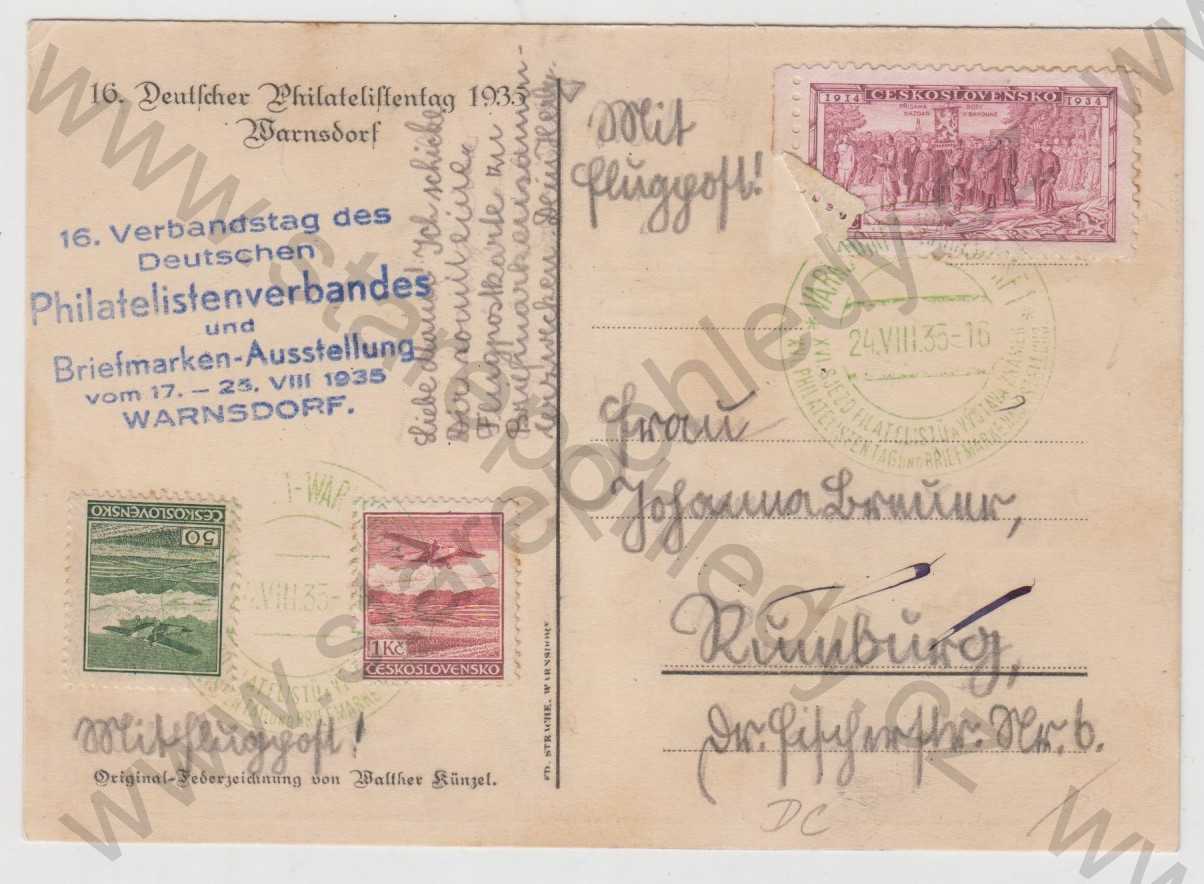 16. Deutscher Philatelistentag 1935
Warnsdorf
16. Verbandstag des
Deutschen
Philatelistenverbandes
und
Briefmarken-Ausstellung
vom 17. – 25. VIII 1935
WARNSDORF.
Liebe Mama! Ich schicke
Dir somit eine
Flugpostkarte zu
Briefmarken
Dein
Mit
Flugpost!
1914 ČESKOSLOVENSKO 1934
24.VIII.35-16
XVI. SJEZD FILATELISTŮ A VÝSTAVA
XVI. PHILATELISTENTAG UND BRIEFMARKEN
Frau
Johanna Breuer,
Rumburg,
Dr. Fischerstr. Nr. 6.
ČESKOSLOVENSKO
50
1 Kč
ČESKOSLOVENSKO
VIII.35-
Mit Flugpost!
Original-Federzeichnung von Walther Künzel.
ED. STRACHE, WARNSDORF
DC
www.starepohledy.cz